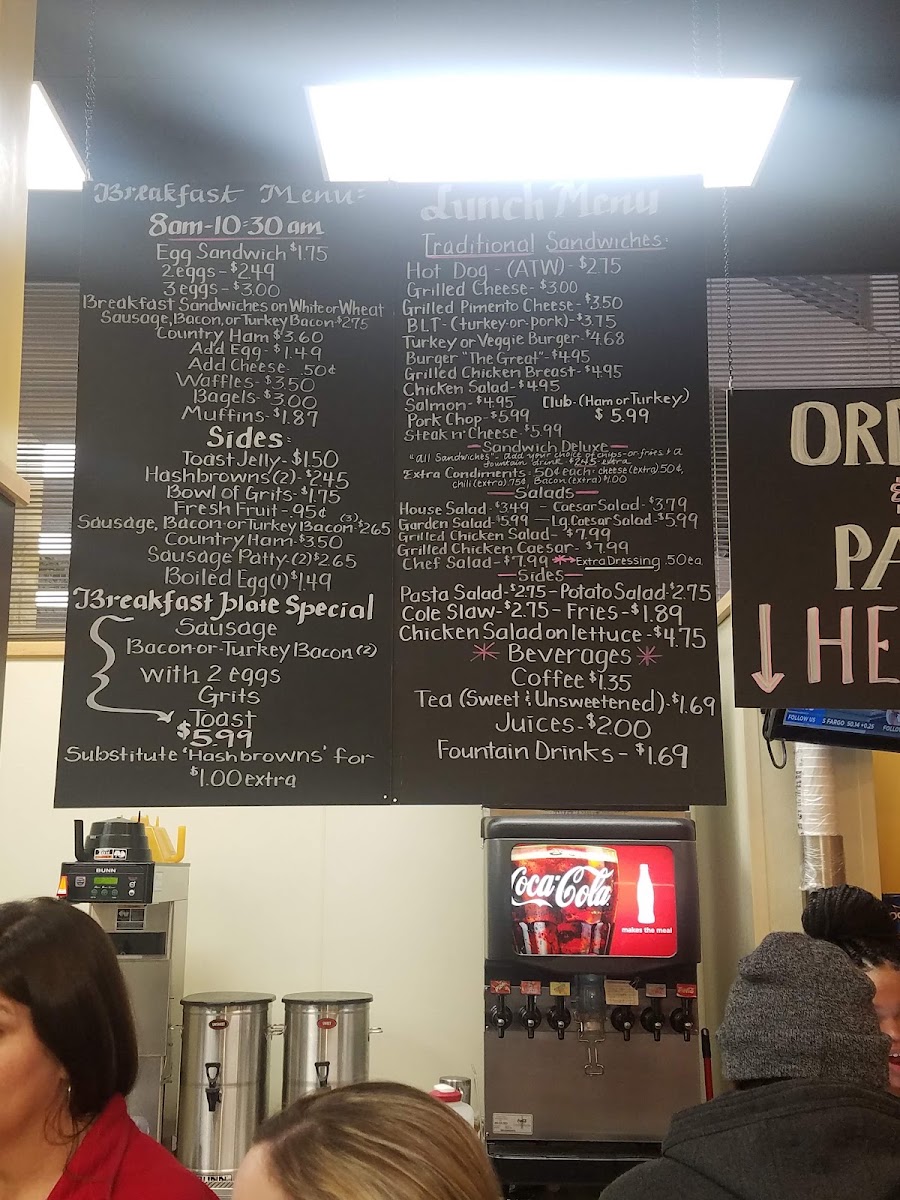 Breakfast Menu:
8am-10:30am
Egg Sandwich $1.75
2eggs-$2.49
3eggs-$3.00
Breakfast Sandwiches on White or Wheat
Sausage, Bacon, or Turkey Bacon $2.75
Country Ham $3.60
Add Egg-$1.49
Add Cheese- .50¢
Waffles-$3.50
Bagels-$3.00
Muffins-$1.87
Sides:
Toast Jelly-$1.50
Hashbrowns(2)-$2.45
Bowl of Grits-$1.75
Fresh Fruit-.95¢
Sausage, Bacon-or Turkey Bacon-(3) $2.65
Country Ham-$3.50
Sausage Patty-(2)$2.65
Boiled Egg(1)$1.49
Breakfast plate Special
Sausage
Bacon-or-Turkey Bacon(2)
with 2 eggs
Grits
Toast
$5.99
Substitute 'Hashbrowns' for
$1.00 extra
Lunch Menu
Traditional Sandwiches:
Hot Dog-(ATW)-$2.75
Grilled Cheese-$3.00
Grilled Pimento Cheese-$3.50
BLT-(turkey-or-pork)-$3.75
Turkey or Veggie Burger-$4.68
Burger "The Great"-$4.95
Grilled Chicken Breast-$4.95
Chicken Salad-$4.95
Salmon-$4.95 Club-(Ham or Turkey)
Pork Chop-$5.99 $5.99
Steak n' Cheese-$5.99
Sandwich Deluxe
"all Sandwiches"-add your choice of chips-or-fries & a
fountain drink $2.45 extra
Extra Condiments: .50¢ each: cheese(extra).50¢,
chili (extra) .75¢, Bacon(extra)$1.00
Salads
House Salad-$3.49 - Caesar Salad-$3.79
Garden Salad-$5.99 - Lg. Caesar Salad-$5.99
Grilled Chicken Salad-$7.99
Grilled Chicken Caesar-$7.99
Chef Salad-$7.99 Extra Dressing .50ea
Sides
Pasta Salad-$2.75-Potato Salad-$2.75
Cole Slaw-$2.75-Fries-$1.89
Chicken Salad on lettuce-$4.75
Beverages
Coffee $1.35
Tea (Sweet & Unsweetened)-$1.69
Juices-$2.00
Fountain Drinks-$1.69
FOLLOW US
S FARGO 50.14 +0.25
BUNN
Coca-Cola
makes the meal